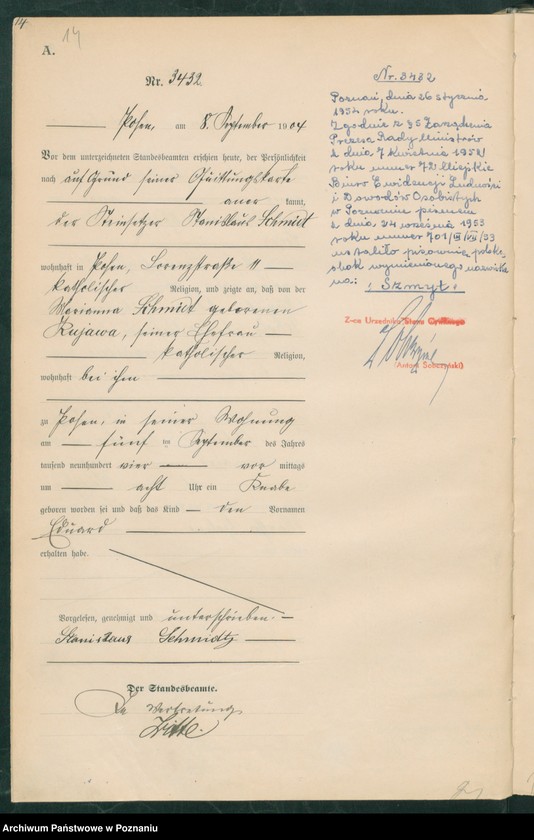 14
A. 14
Nr. 3432
Posen, am 8. September 1904
Vor dem unterzeichneten Standesbeamten erschien heute, der Persönlichkeit
nach auf Grund seiner Quittungskarte
aner kannt,
der Steinsetzer Stanislaus Schmidt
wohnhaft in Posen, Lorenzstraße 11
katholischer Religion, und zeigte an, daß von der
Marianna Schmidt geborenen
Kujawa, seiner Ehefrau
katholischer Religion,
wohnhaft bei ihm
zu Posen, in seiner Wohnung
am fünf ten September des Jahres
tausend neunhundert vier vor mittags
um acht Uhr ein Knabe
geboren worden sei und daß das Kind den Vornamen
Eduard
erhalten habe.
Vorgelesen, genehmigt und unterschrieben.
Stanislaus Schmidt
Der Standesbeamte.
In Vertretung
Nr. 3432
Poznań, dnia 26 stycznia
1954 roku.
Zgodnie z § 5 Zarządzenia
Prezesa Rady Ministrów
z dnia 7 kwietnia 1952
roku numer 72 Miejskie
Biuro Ewidencji Ludności
i Dowodów Osobistych
w Poznaniu pismem
z dnia 24 września 1953
roku numer 701/III/VII/53
ustaliło pisownię polską
obok wymienionego nazwiska
na: "Szmyt"
Z-ca Urzędnika Stanu Cywilnego
(Antoni Sobczyński)
Archiwum Państwowe w Poznaniu